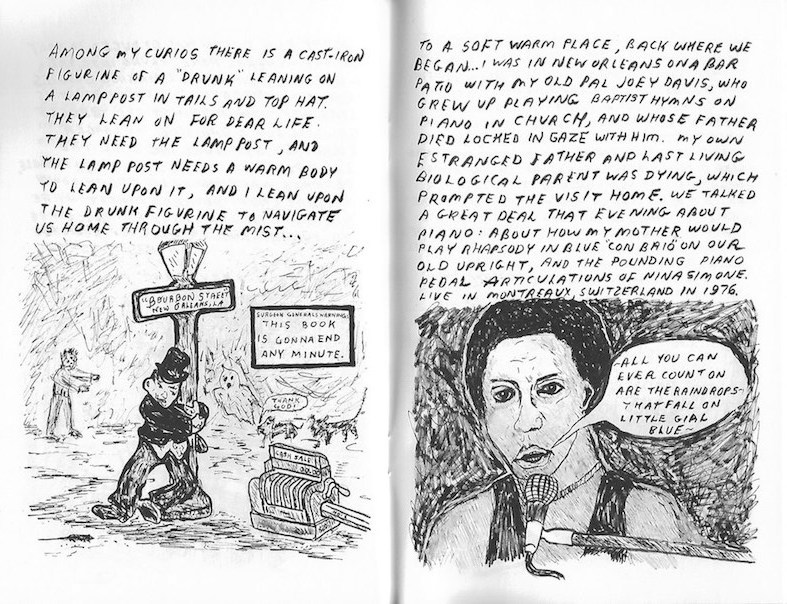 AMONG MY CURIOS THERE IS A CAST-IRON
FIGURINE OF A "DRUNK" LEANING ON
A LAMPPOST IN TAILS AND TOP HAT.
THEY LEAN ON FOR DEAR LIFE.
THEY NEED THE LAMP POST, AND
THE LAMP POST NEEDS A WARM BODY
TO LEAN UPON IT, AND I LEAN UPON
THE DRUNK FIGURINE TO NAVIGATE
US HOME THROUGH THE MIST...
"BOURBON STREET"
NEW ORLEANS, LA
SURGEON GENERALS WARNING:
THIS BOOK
IS GONNA END
ANY MINUTE.
THANK
GOD!
CASH SALE
TO A SOFT WARM PLACE, BACK WHERE WE
BEGAN... I WAS IN NEW ORLEANS ON A BAR
PATIO WITH MY OLD PAL JOEY DAVIS, WHO
GREW UP PLAYING BAPTIST HYMNS ON
PIANO IN CHURCH, AND WHOSE FATHER
DIED LOCKED IN GAZE WITH HIM. MY OWN
ESTRANGED FATHER AND LAST LIVING
BIOLOGICAL PARENT WAS DYING, WHICH
PROMPTED THE VISIT HOME. WE TALKED
A GREAT DEAL THAT EVENING ABOUT
PIANO: ABOUT HOW MY MOTHER WOULD
PLAY RHAPSODY IN BLUE "CON BRIÓ" ON OUR
OLD UPRIGHT, AND THE POUNDING PIANO
PEDAL ARTICULATIONS OF NINA SIMONE.
LIVE IN MONTREAUX, SWITZERLAND IN 1976.
~ALL YOU CAN
EVER COUNT ON
ARE THE RAINDROPS~
THAT FALL ON
LITTLE GIRL
BLUE~